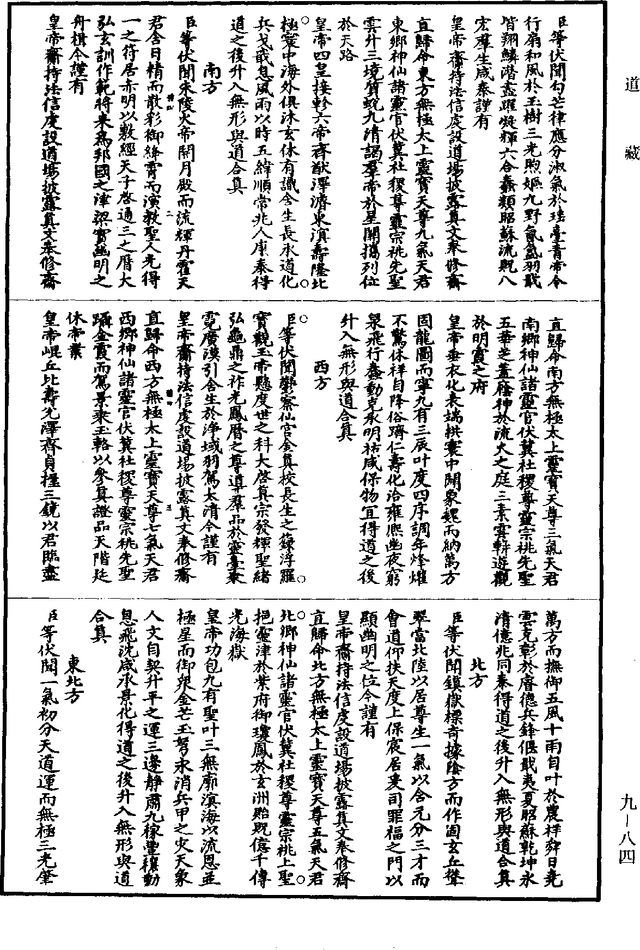 道藏
臣等伏聞勾芒律應分淑氣於瑤臺青帝令
行扇和風於玉樹三光煦嫗九野氤氳羽戢
皆翔鱗潛盡躍凝輝六合蠢類昭蘇流覬八
宏羣生咸泰謹有
皇帝齋持法信虔設道場披露真文奉修齋
直歸命東方無極太上靈寶天尊九氣天君
東鄉神仙諸靈官伏冀社稷尊靈宗祧先聖
雲升三境質蛻九清謁羣帝於星關攜列位
於天路
皇帝四皇接軫六帝齊猷澤濟東溟壽隆北
極寰中海外俱沐玄休有識含生長承道化
兵戈戢息風雨以時五緯順常兆人康泰得
道之後升入無形與道合真
南方
臣等伏聞朱陵火帝開月殿而流輝丹霍天
君含日精而散彩御絳霄而演教聖人先得
一之符居赤明以敷經天子啓通三之曆大
弘玄訓作範將來為邦國之津梁實幽明之
舟楫今謹有
皇帝齋持法信虔設道場披露真文奉修齋
直歸命南方無極太上靈寶天尊三氣天君
南鄉神仙諸靈官伏冀社稷尊靈宗祧先聖
五華芝蓋蔭神於流火之庭三素雲軿遊觀
於明霞之府
皇帝垂衣化表端拱寰中開象魏而納萬方
固龍圖而寧九有三辰叶度四序調年烽燧
不驚休祥自降俗躋仁壽化洽雍熙幽夜窮
泉飛行蠢動克承明祜咸保物宜得道之後
升入無形與道合真
西方
臣等伏聞鬱察仙官金真校長生之籙浮羅
寶觀玉帝懸度世之科大啓真宗發輝聖緒
弘龜鼎之祚光鳳曆之尊導羣品於靈臺褰
霓廣漠引含生於淨域羽駕太清今謹有
皇帝齋持法信虔設道場披露真文奉修齋
直歸命西方無極太上靈寶天尊七氣天君
西鄉神仙諸靈官伏冀社稷尊靈宗祧先聖
躡金霞而駕景乘玉輅以參真證品天階延
休帝業
皇帝崐丘比壽光澤齊貞握三鏡以君臨盡
萬方而撫御五風十雨自叶於農祥舜日堯
雲克彰於睿德兵鋒偃戢夷夏昭蘇乾坤永
清億兆同泰得道之後升入無形與道合真
北方
臣等伏聞鎮嶽標奇據陰方而作固玄丘聳
翠當北陸以居尊生一氣以含元分三才而
會道仰扶天度上保宸居爰司罪福之門以
顯幽明之位今謹有
皇帝齋持法信虔設道場披露真文奉修齋
直歸命北方無極太上靈寶天尊五氣天君
北鄉神仙諸靈官伏冀社稷尊靈宗祧上聖
挹靈津於紫府御瓊鳳於玄洲貽貺億千傳
光海嶽
皇帝功包九有聖叶三無廓溟海以流恩並
極星而御衆金芒玉弩永消兵甲之災天象
人文自契升平之運三邊靜肅九稼豐穰動
息飛沈咸承景化得道之後升入無形與道
合真
東北方
臣等伏聞一氣初分天道運而無極三光肇
九—八四